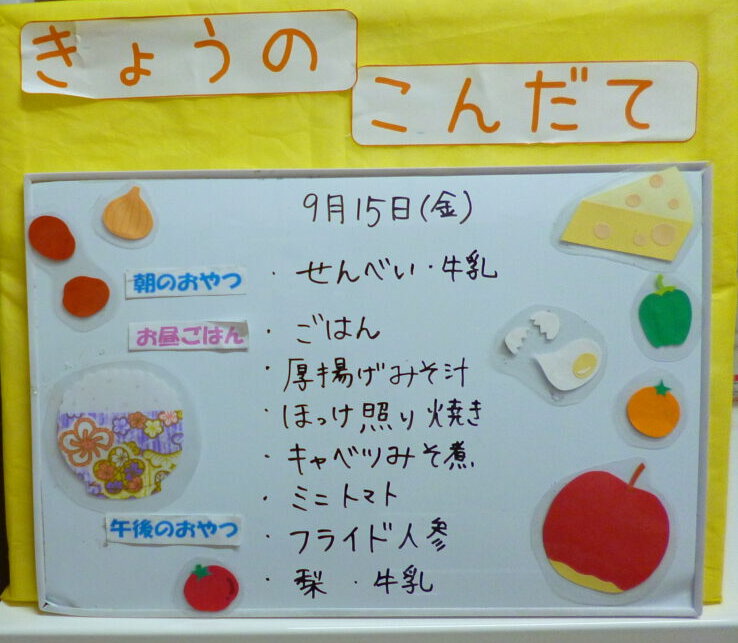 きょうの
こんだて
9月15日(金)
朝のおやつ ・ せんべい・牛乳
お昼ごはん ・ ごはん
・厚揚げみそ汁
・ほっけ照り焼き
・キャベツみそ煮
・ミニトマト
午後のおやつ ・ フライド人参
・梨 ・ 牛乳